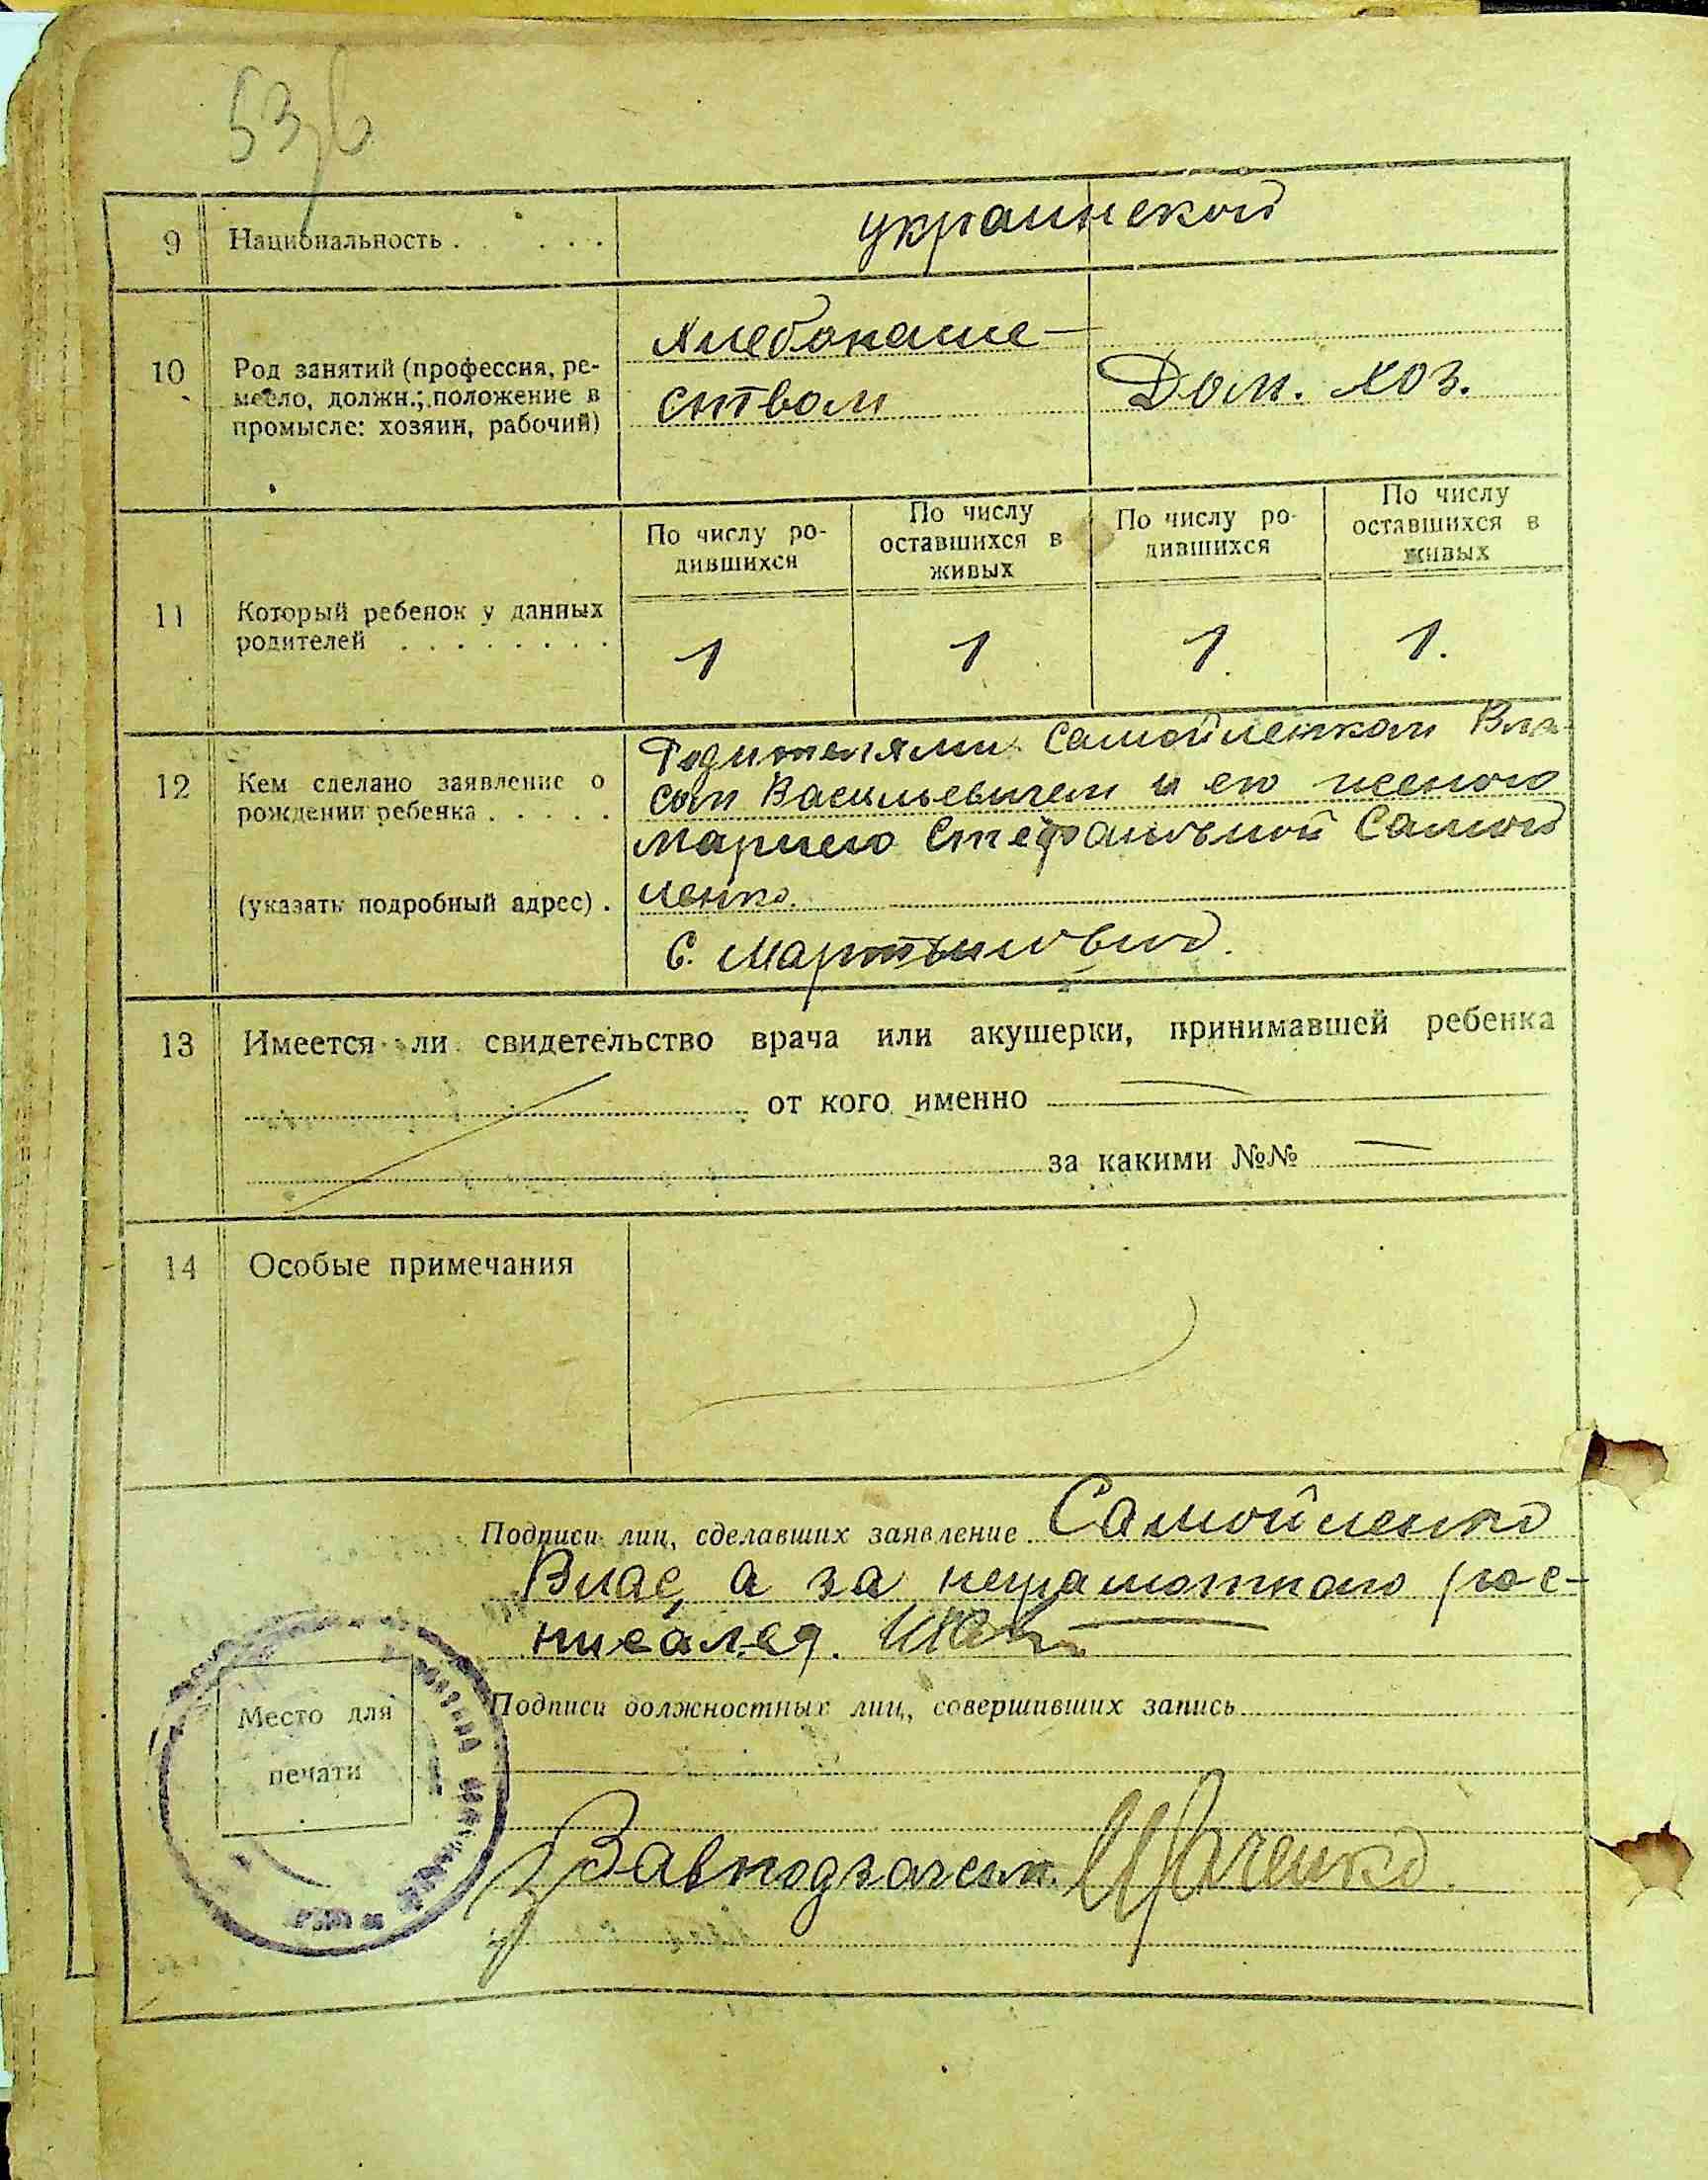 9 Национальность . . . . . украинской
10 Род занятий (профессия, ре-
месло, должн.; положение в
промысле: хозяин, рабочий)
хлебопаше-
ством
Дом. хоз.
По числу ро-
дившихся
По числу
оставшихся в
живых
По числу ро-
дившихся
По числу
оставшихся в
живых
11 Который ребенок у данных
родителей . . . . . . . .
1 1 1. 1.
12 Кем сделано заявление о
рождении ребенка . . . . .
(указать подробный адрес) .
Родителями Самойленком Вла-
сом Васильевичем и его женою
Мариею Стефановной Самой
ленко.
С. Мартыновка.
13 Имеется ли свидетельство врача или акушерки, принимавшей ребенка
от кого именно
за какими №№
14 Особые примечания
Подписи лиц, сделавших заявление Самойленко
Влас, а за неграмотного рос-
писался.
Место для
печати
Подписи должностных лиц, совершивших запись